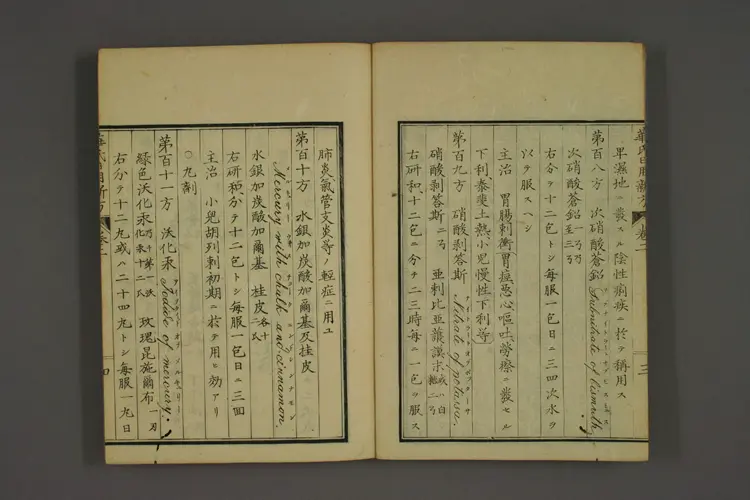 卑濕地ニ發スル陰性痢疾ニ於テ稱用ス
第百八方 次硝酸蒼鉛 Subnitrate of bismuth.
次硝酸蒼鉛
右分テ十二包トシ每服一包日ニ三四次水ヲ
以テ服スヘシ
主治 胃腸刺衝胃痙惡心嘔吐勞瘵ニ發セル
下利泰斐土熱小兒慢性下利等
第百九方 硝酸剥答斯 Nitrate of potassa.
硝酸剥答斯 亞剌比亞護謨末
右研和十二包ニ分チ二三時每ニ一包ヲ服ス
肺炎氣管支炎等ノ輕症ニ用ユ
第百十方 水銀加炭酸加爾基及桂皮
Mercury with chalk and cinnamon.
水銀加炭酸加爾基 桂皮
右研和分テ十二包トシ每服一包日ニ三四
主治 小兒胡列剌初期ニ於テ用ヒ効アリ
○丸劑
第百十一方 沃化汞 Iodide of mercury.
綠色沃化汞 玫瑰昆施爾布
右分テ十二丸或ハ二十四丸トシ每服一丸日